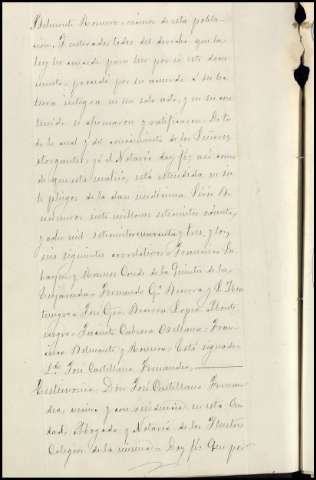 Belmonte Romero, vecinos de esta pobla-
cion. Y enterados todos del derecho que la
ley les concede para leer por sí este docu-
mento, procedí por su acuerdo á su lec-
tura íntegra en un solo acto, y en su con-
tenido se afirmaron y ratificaron. De to-
do lo cual y del conocimiento de los Señores
otorgantes, yo el Notario doy fé, así como
de que esta matriz, está extendida en
pliegos de la clase undécima Série
números siete millones setecientos
y ocho mil setecientos cuarenta y tres, y los
seis siguientes correlativos = Francisco
y Romero = Conde de la Quinta de la
Enjarada = Fernando Gª Becerra y
= José Gª Becerra = Lopez
= Juana Cabrera Orellana = Fran-
cisco Belmonte y Romero = Está signado =
Ldo. José Castellano Fernandez
Testimonio. Don José Castellano Fernan-
dez, vecino y con residencia en esta Ciu-
dad, Abogado y Notario de los Ilustres
Colegios de la misma = Doy fé: Que por